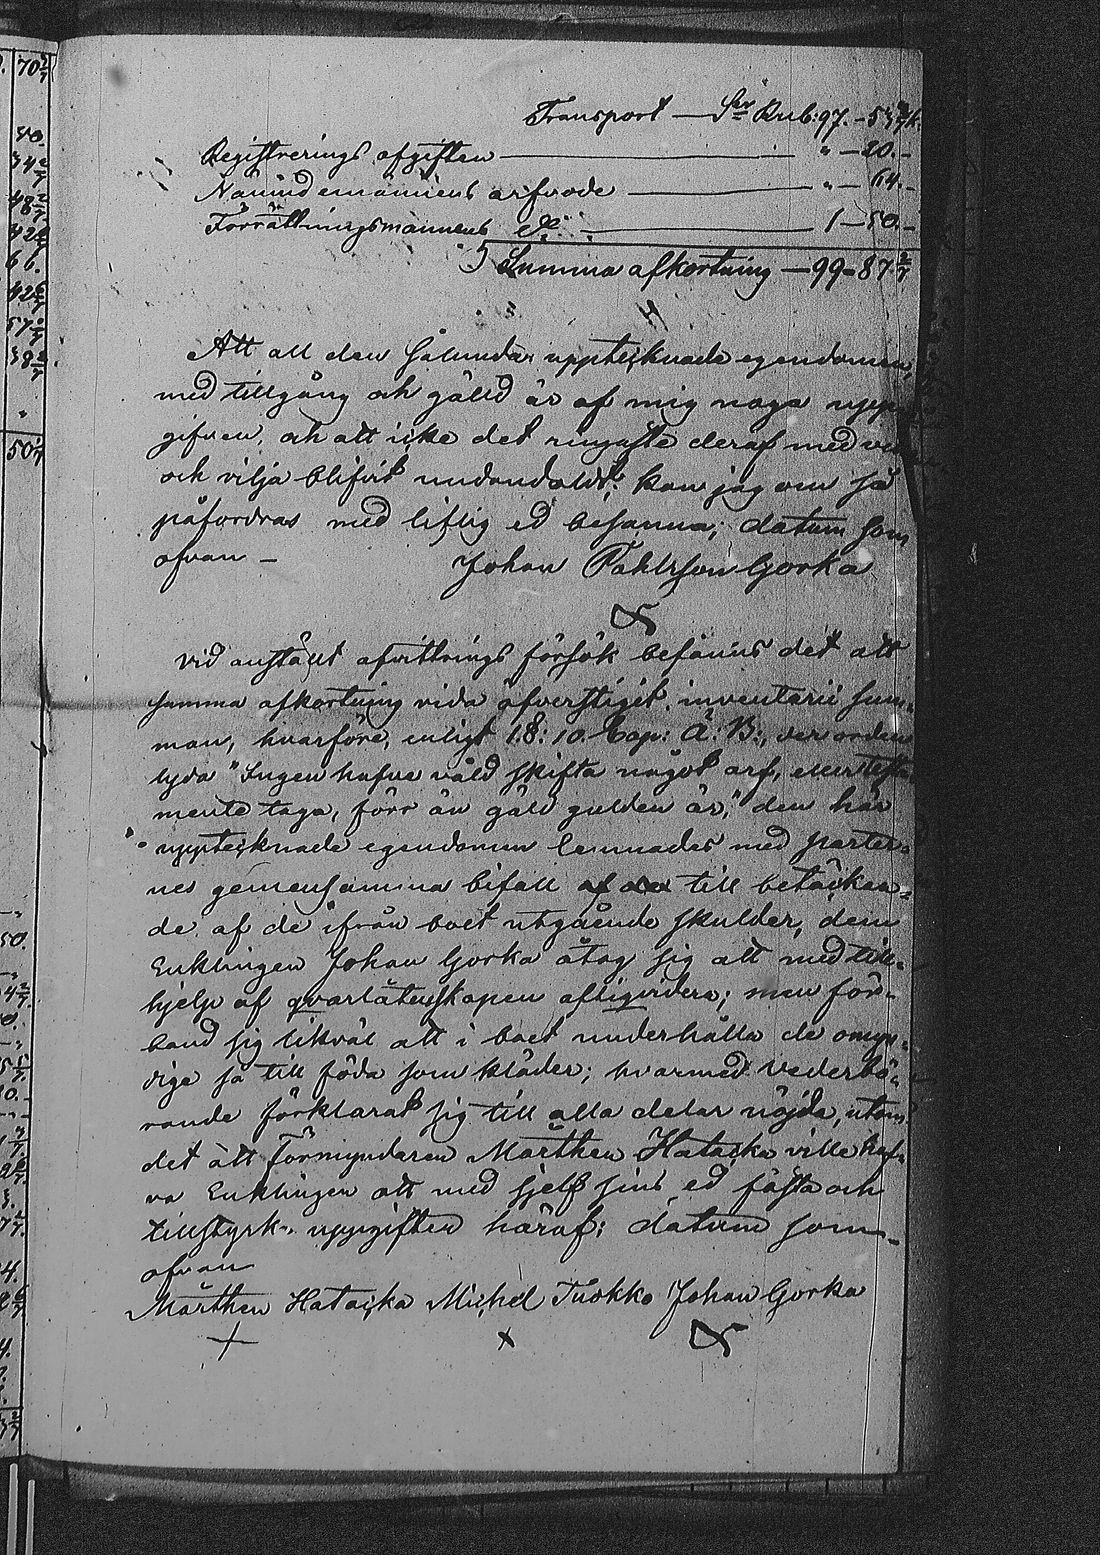 Transport — Slr Rub: 97. - 53 2/7 k.
Registrerings afgiften — " — 20. -
Nämndemännens arfvode — " — 64. -
Förrättningsmannens do — 1 — 50. -
Summa afkortning — 99 - 87 2/7
Att all den sålunda upptecknade egendomen,
med tillgång och gäld är af mig noga upp-
gifven, och att icke det ringaste deraf med ve
och vilja blifvit undandoldt; kan jag om så
påfordras med liflig ed besanna; datum som
ofvan — Johan Pahlsson Gorka
Vid anstäldt afvittrings försök befanns det att
samma afkortning vida öfverstiget inventarii sum-
man, hvarföre, enligt 1 §: 10. Cap: Ä: B:, der orden
lyda "Ingen hafve våld skifta något arf, eller testa
mente taga, förr än gäld gulden är," den här
upptecknade egendomen lemnades med parter-
nes gemensamma bifall till betäckan-
de af de ifrån boet utgående skulder, dem
Enklingen Johan Gorka åtog sig att med till-
hjelp af qvarlåtenskapen afliqvidera; men för-
band sig likväl att i boet underhålla de omyn-
dige så till föda som kläder; hvarmed vederbö-
rande förklarat sig till alla delar nöjda, utom
det att Förmyndaren Mårthen Hatacka ville haf-
va Enklingen att med sjelf sins ed fästa och
tillstyrk. uppgiften häraf; datum som
ofvan
Mårthen Hatacka Michel Tuokko Johan Gorka